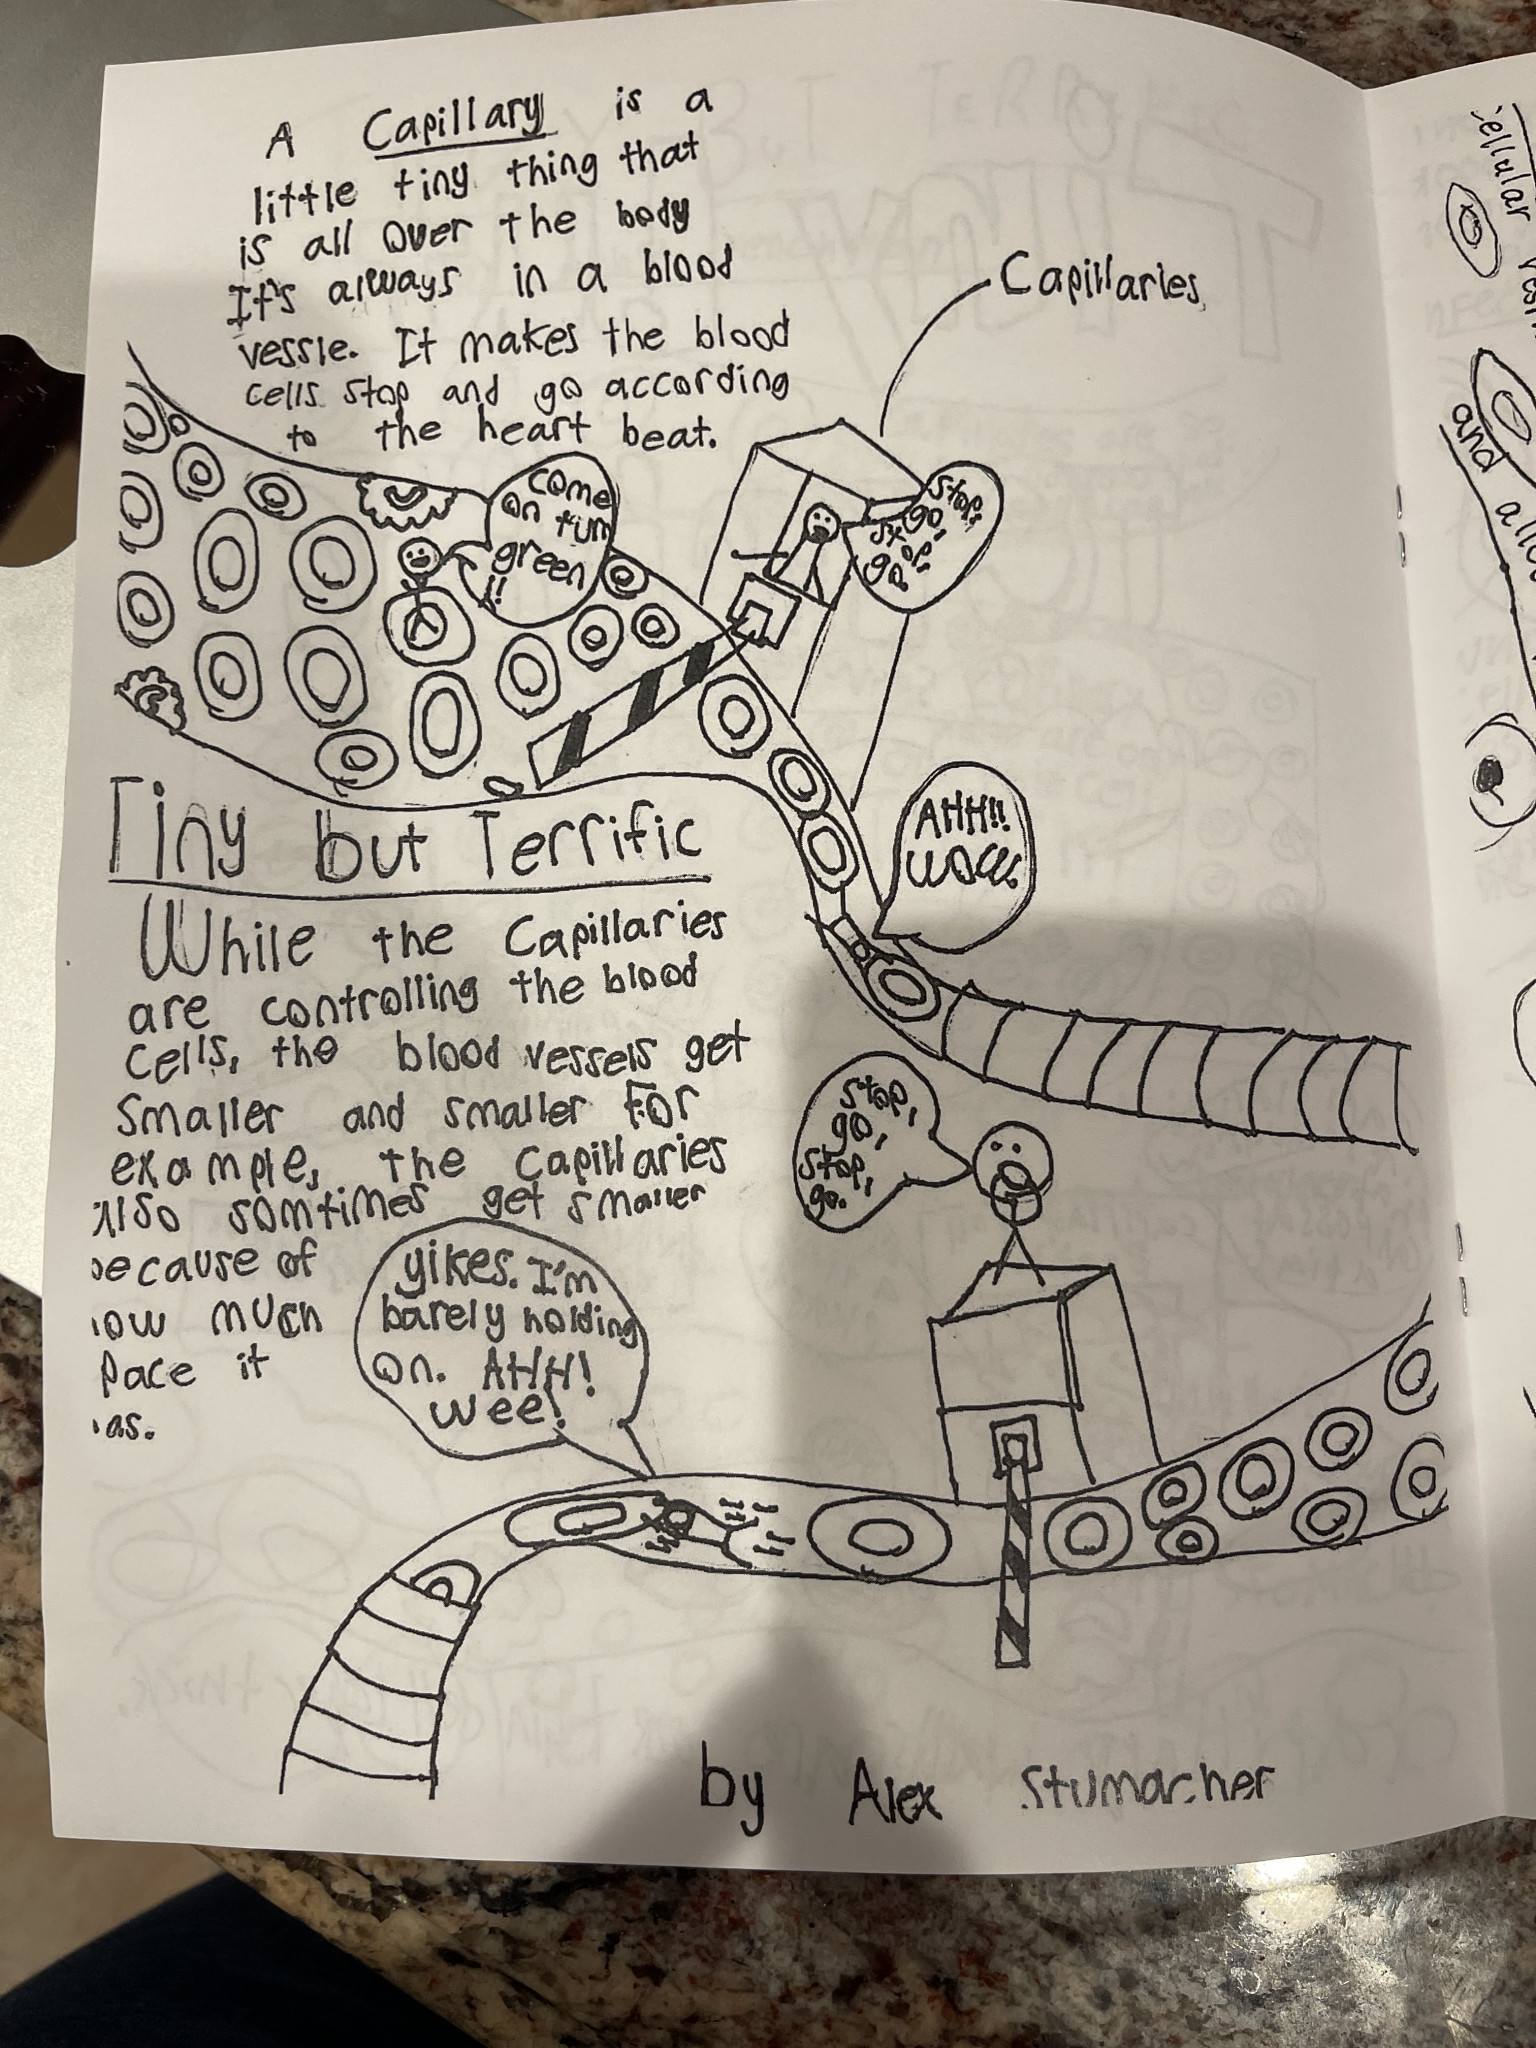 A Capillary is a
little tiny thing that
is all over the body
It's always in a blood
vessle. It makes the blood
cells stop and go according
to the heart beat.
Capillaries
come
on turn
green
!!
stop,
go,
stop,
go
Tiny but Terrific
AHH!!
While the Capillaries
are controlling the blood
cells, the blood vessels get
smaller and smaller For
example, the capillaries
also somtimes get smaller
because of
how much
pace it
as.
stop,
go,
stop,
go.
yikes. I'm
barely holding
on. AHH!
wee!
by Alex Stumacher
cellular
and